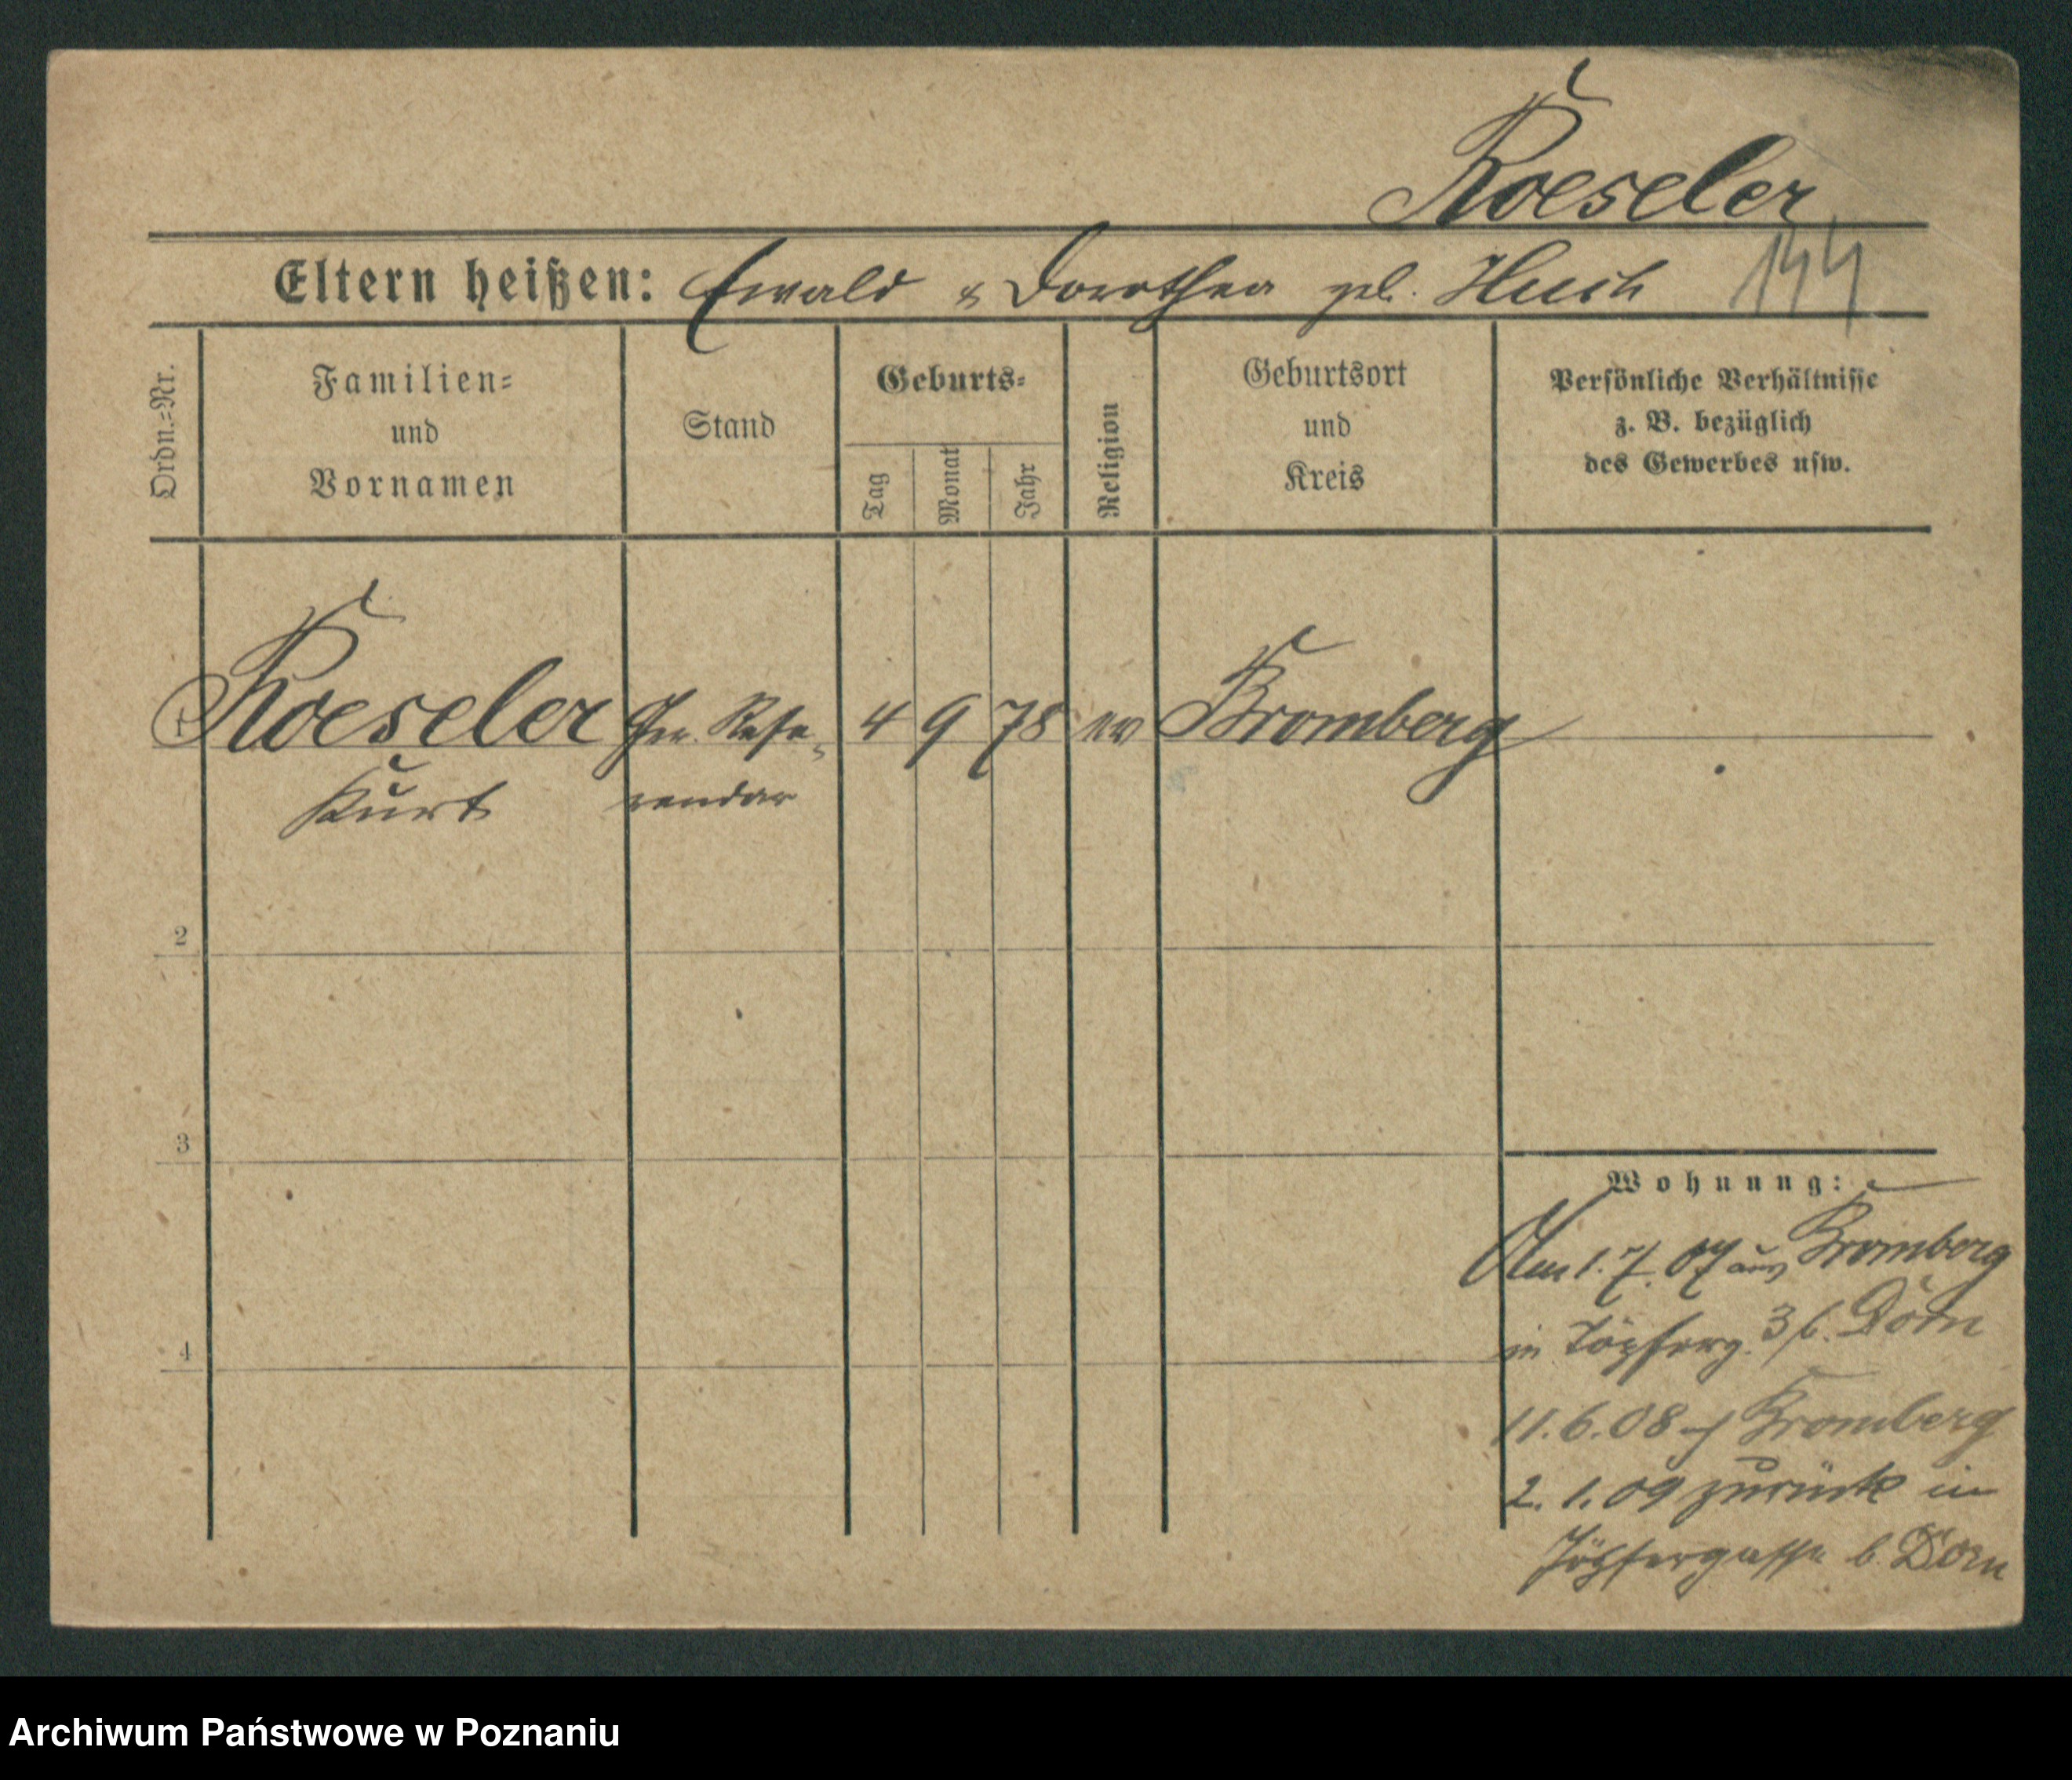 Roeseler
Eltern heißen: Ewald & Dorothea geb. Huch 144
Ordn.=Nr.
Familien=
und
Vornamen
Stand
Geburts=
Tag
Monat
Jahr
Religion
Geburtsort
und
Kreis
Persönliche Verhältnisse
z. B. bezüglich
des Gewerbes usw.
1 Roeseler Refe- 4 9 78 ev Bromberg
Kurt rendar
2
3
Wohnung:
Am 1. 7. 07 aus Bromberg
in Töpferg. 3 b. Dorn
4
11.6.08 Bromberg
2. 1. 09 zurück in
Töpfergasse b. Dorn
Archiwum Państwowe w Poznaniu